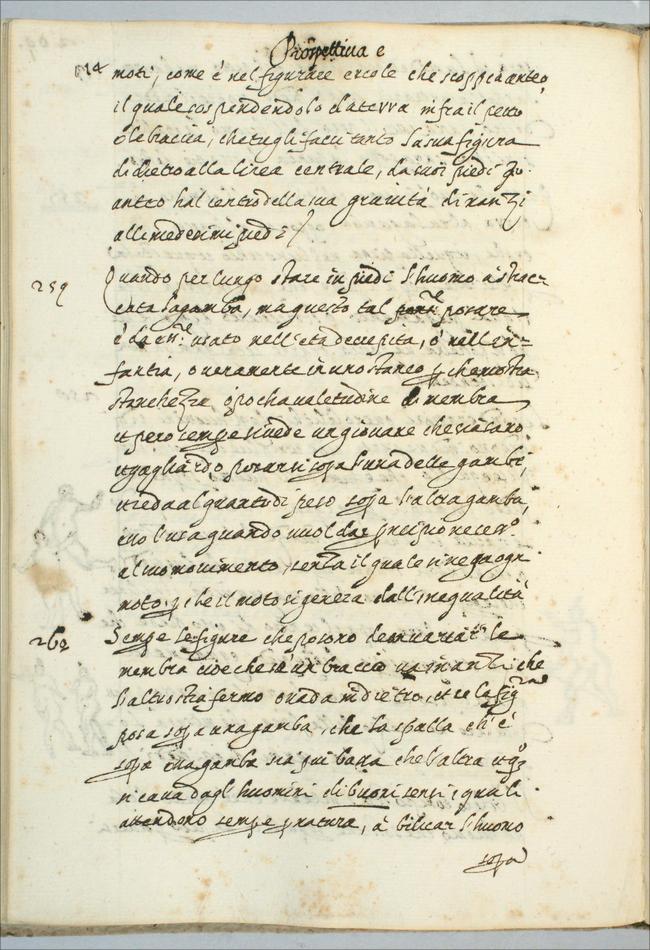 Prospettiva e
moti, come è nel figurare ercole che scoppia anteo,
il quale sospendendolo da terra infra il petto
e le braccia, che tu gli facci tanto la sua figura
di dietro alla linea centrale, da suoi piedi qto
anteo ha l centro della sua gravità dinanzi
alli medesimi piedi
259 Quando per lungo stare in piedi l huomo a strac-
cata la gamba, ma questo tal posare
è da essere usato nell età decrepita, o nell in-
fantia, o veramente in uno stanco perche mostra
stanchezza o pocha valetudine di membra
et pero sempre si vede un giovane che sia sano
et gagliardo posarsi sopra l una delle gambe,
di peso sopra l altra gamba,
e lo usa quando vuol dar principio necesso
al suo movimento, senza il quale si nega ogni
moto perche il moto si genera dall inequalità
260 Sempre le figure che posono devvariate le
membra cioe che se un braccio va inanzi che
l altro stia fermo o vada indietro, et se la figra
posa sopra una gamba, che la spalla ch è
sopra essa gamba sia piu bassa che l altra et qo
si cava dagl huomini di buoni sensi, quali
attendono sempre per natura, à bilicar l huomo
sopra